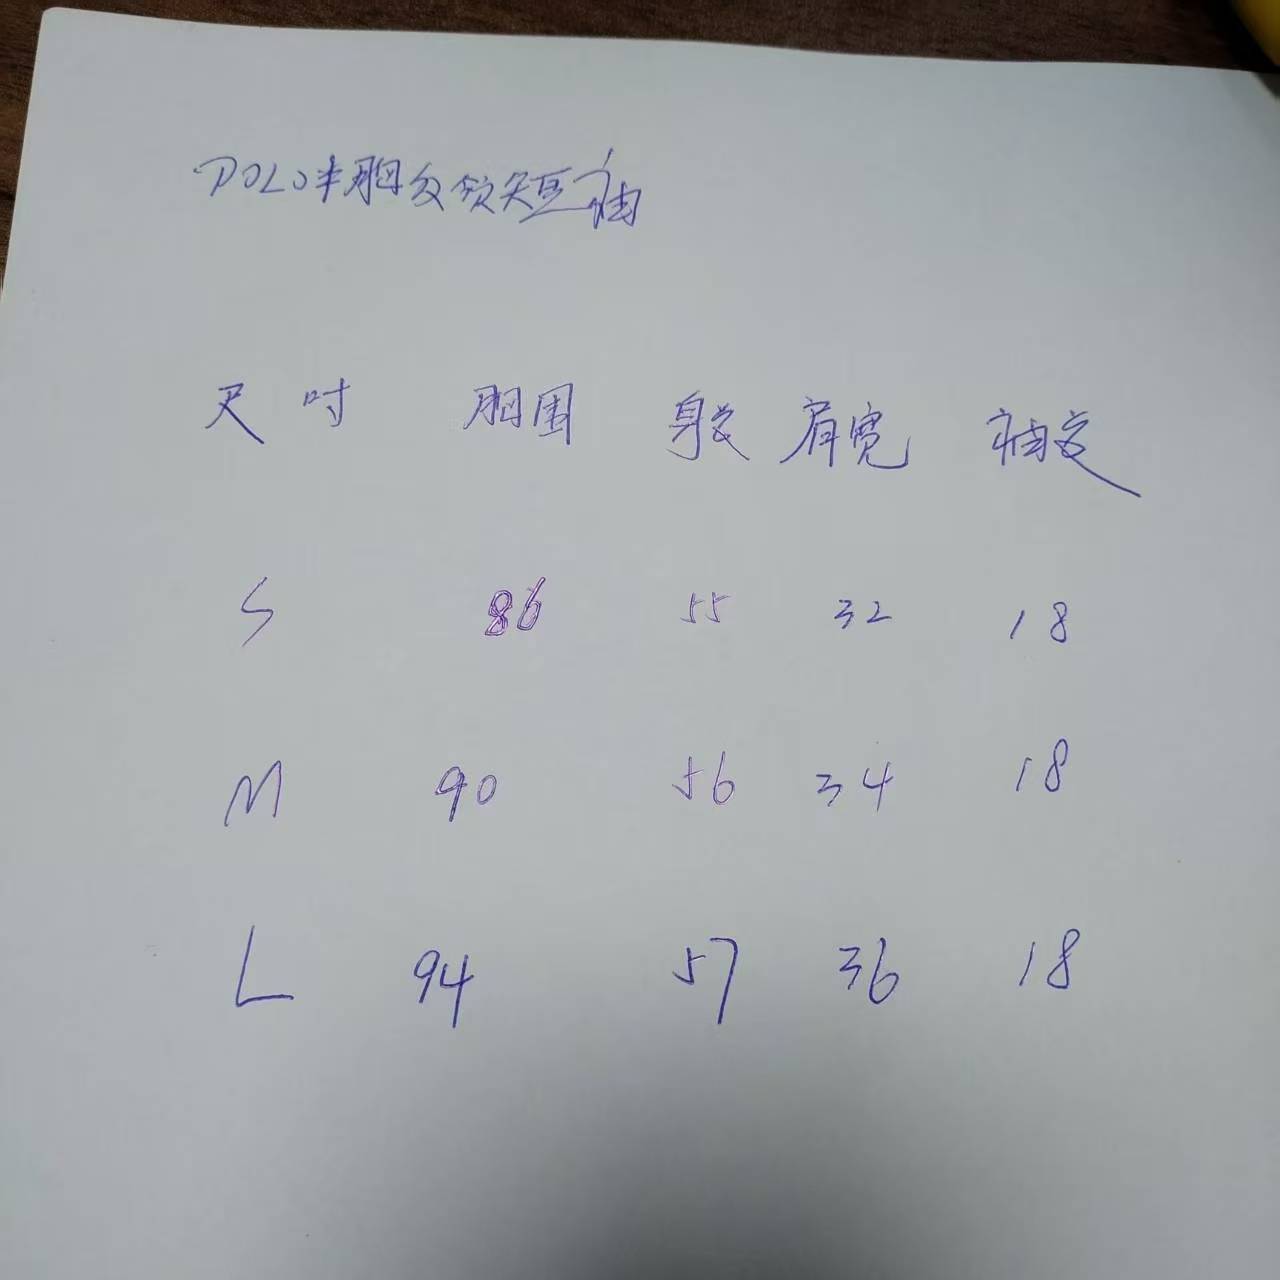 POLO半胸女款短袖
尺 吋 胸围 身长 肩宽 袖长
S 86 55 32 18
M 90 56 34 18
L 94 57 36 18